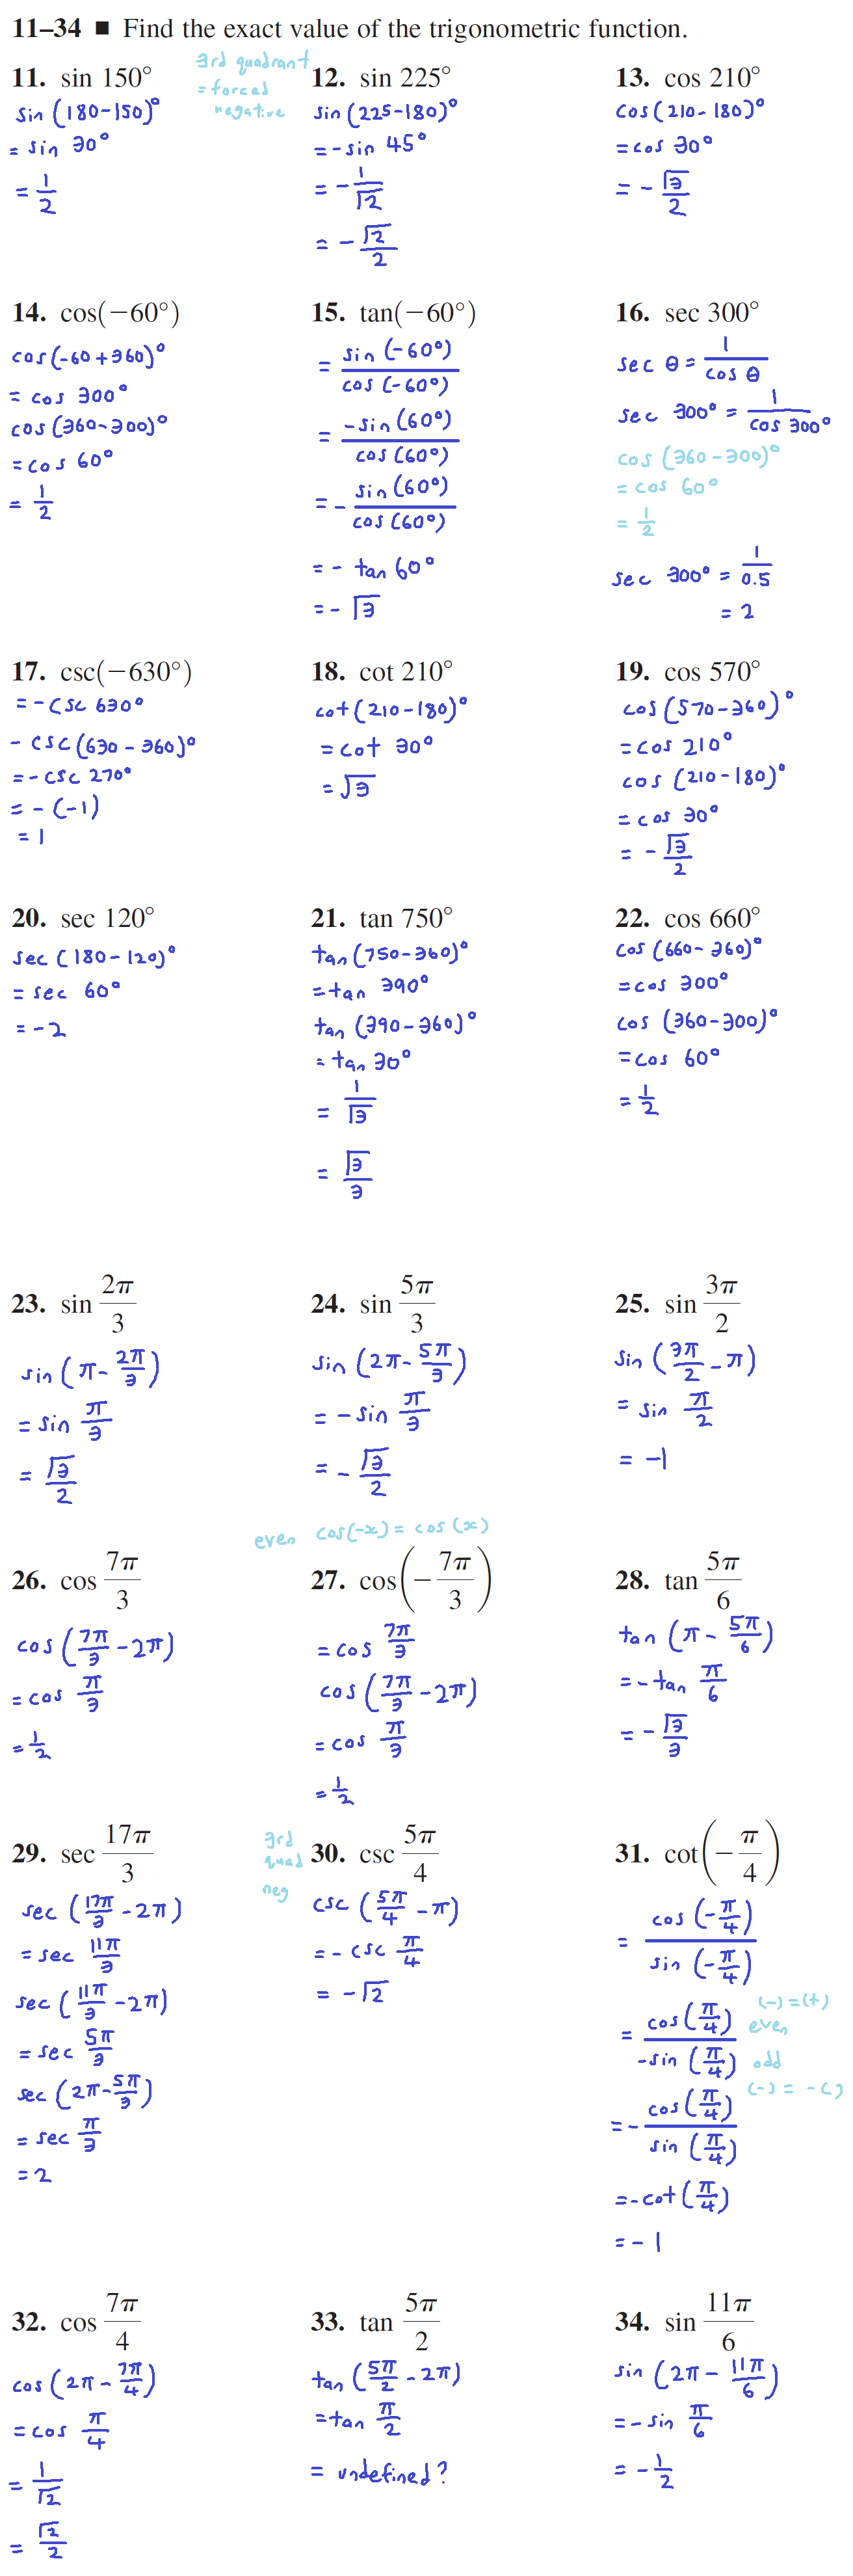 11–34 ■ Find the exact value of the trigonometric function.
3rd quadrant
= forced
negative
11. sin 150°
sin (180-150)°
= sin 30°
= 1/2
12. sin 225°
sin (225-180)°
= -sin 45°
= - 1/√2
= - √2/2
13. cos 210°
cos (210-180)°
= cos 30°
= - √3/2
14. cos(−60°)
cos (-60+360)°
= cos 300°
cos (360-300)°
= cos 60°
= 1/2
15. tan(−60°)
= sin (-60°)/cos (-60°)
= -sin (60°)/cos (60°)
= - sin (60°)/cos (60°)
= - tan 60°
= - √3
16. sec 300°
sec θ = 1/cos θ
sec 300° = 1/cos 300°
cos (360-300)°
= cos 60°
= 1/2
sec 300° = 1/0.5
= 2
17. csc(−630°)
= -csc 630°
- csc (630-360)°
= -csc 270°
= - (-1)
= 1
18. cot 210°
cot (210-180)°
= cot 30°
= √3
19. cos 570°
cos (570-360)°
= cos 210°
cos (210-180)°
= cos 30°
= - √3/2
20. sec 120°
sec (180-120)°
= sec 60°
= -2
21. tan 750°
tan (750-360)°
= tan 390°
tan (390-360)°
= tan 30°
= 1/√3
= √3/3
22. cos 660°
cos (660-360)°
= cos 300°
cos (360-300)°
= cos 60°
= 1/2
23. sin 2π/3
sin (π - 2π/3)
= sin π/3
= √3/2
24. sin 5π/3
sin (2π - 5π/3)
= - sin π/3
= - √3/2
25. sin 3π/2
sin (3π/2 - π)
= sin π/2
= -1
even cos(-x) = cos (x)
26. cos 7π/3
cos (7π/3 - 2π)
= cos π/3
= 1/2
27. cos(− 7π/3)
= cos 7π/3
cos (7π/3 - 2π)
= cos π/3
= 1/2
28. tan 5π/6
tan (π - 5π/6)
= - tan π/6
= - √3/3
29. sec 17π/3
sec (17π/3 - 2π)
= sec 11π/3
sec (11π/3 - 2π)
= sec 5π/3
sec (2π - 5π/3)
= sec π/3
= 2
3rd
quad
neg
30. csc 5π/4
csc (5π/4 - π)
= - csc π/4
= - √2
31. cot(− π/4)
= cos (-π/4)/sin (-π/4)
= cos (π/4)/-sin (π/4)
(-) = (+)
even
odd
(-) = -( )
= - cos (π/4)/sin (π/4)
= - cot (π/4)
= - 1
32. cos 7π/4
cos (2π - 7π/4)
= cos π/4
= 1/√2
= √2/2
33. tan 5π/2
tan (5π/2 - 2π)
= tan π/2
= undefined?
34. sin 11π/6
sin (2π - 11π/6)
= - sin π/6
= - 1/2